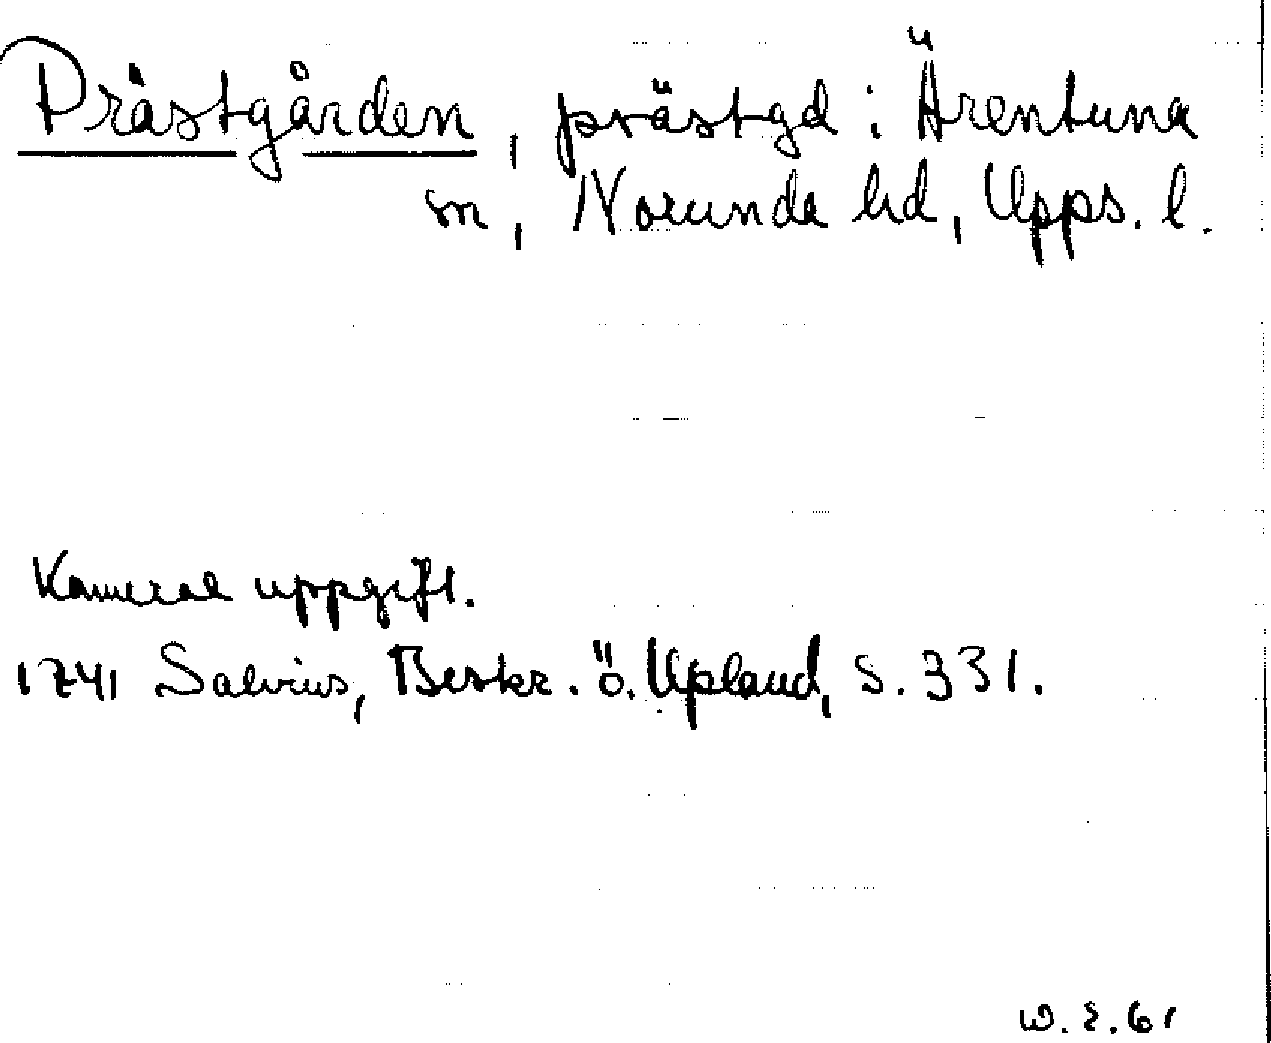 Prästgården, prästgd i Ärentuna
sn, Norunda hd, Upps. l.
Kameral uppgift.
1741 Salvius, Beskr. ö. Upland, S. 331.
W. E. 61